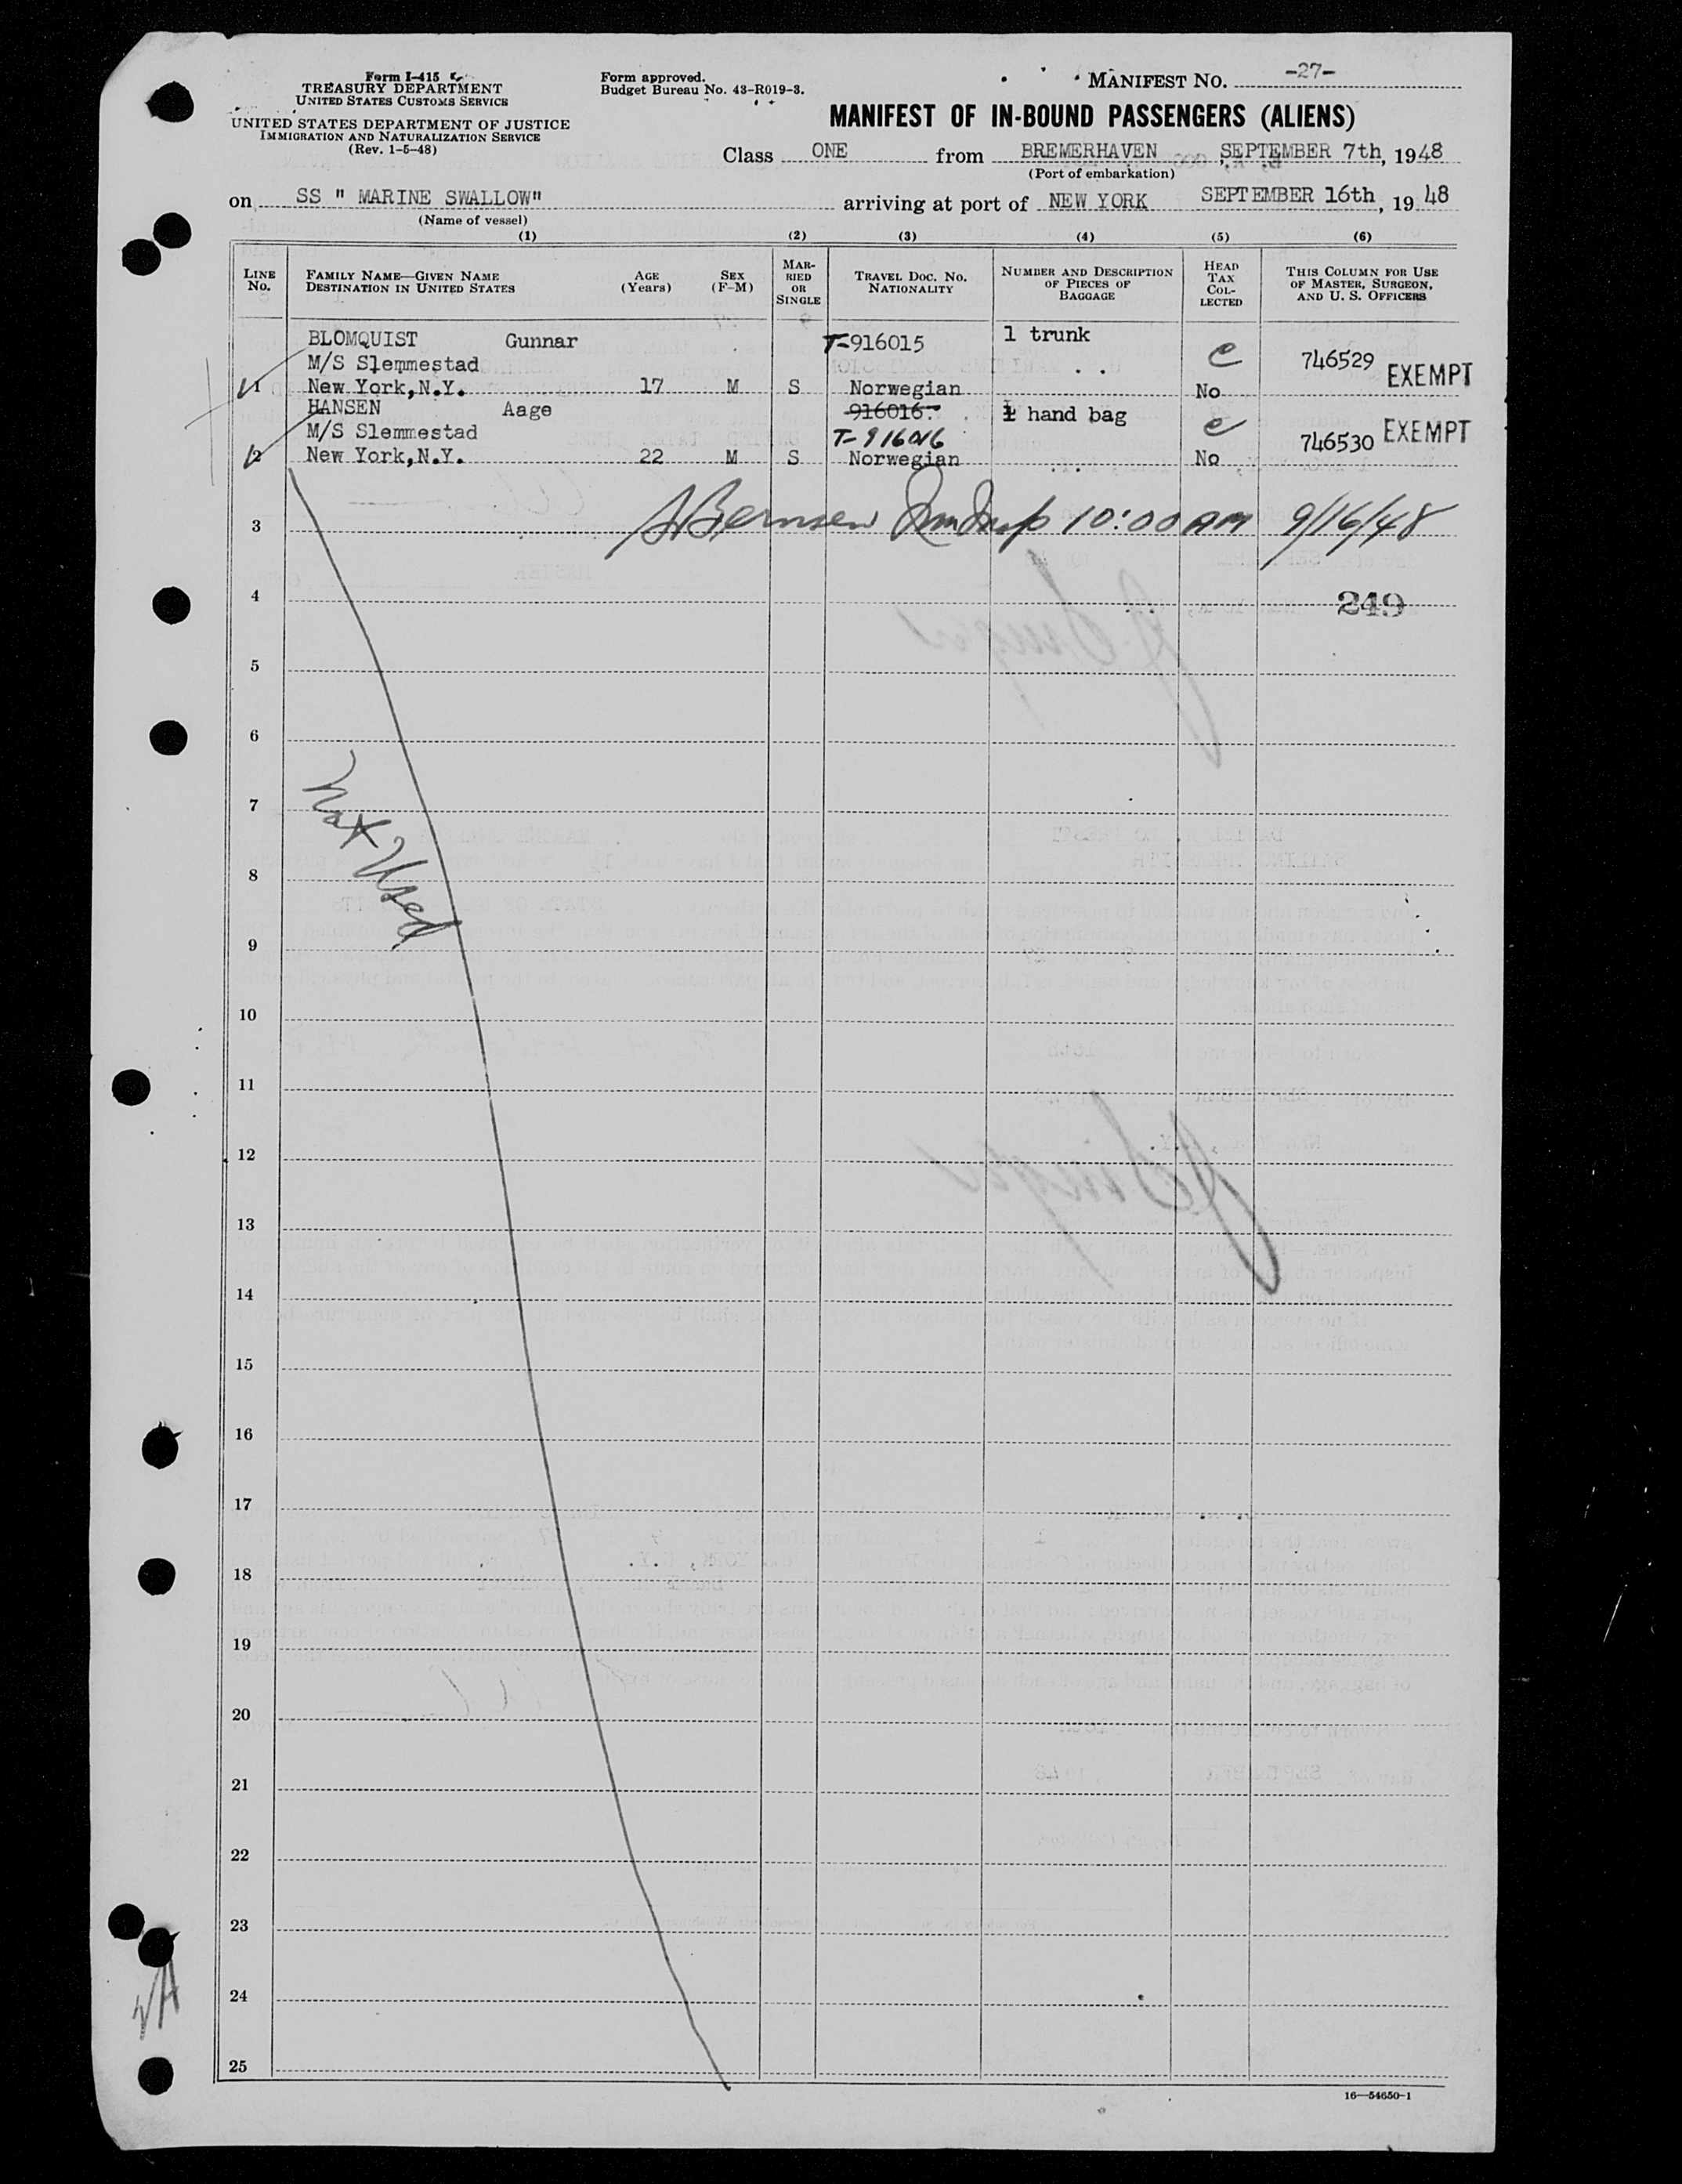 Form I-415
TREASURY DEPARTMENT
UNITED STATES CUSTOMS SERVICE
UNITED STATES DEPARTMENT OF JUSTICE
IMMIGRATION AND NATURALIZATION SERVICE
(Rev. 1-5-48)
Form approved.
Budget Bureau No. 43-R019-3.
MANIFEST NO. -27-
MANIFEST OF IN-BOUND PASSENGERS (ALIENS)
Class ONE from BREMERHAVEN, SEPTEMBER 7th, 1948
(Port of embarkation)
on SS " MARINE SWALLOW" arriving at port of NEW YORK SEPTEMBER 16th, 19 48
(Name of vessel)
(1) (2) (3) (4) (5) (6)
LINE No. FAMILY NAME—GIVEN NAME DESTINATION IN UNITED STATES AGE (Years) SEX (F-M) MARRIED OR SINGLE TRAVEL DOC. NO. NATIONALITY NUMBER AND DESCRIPTION OF PIECES OF BAGGAGE HEAD TAX COLLECTED THIS COLUMN FOR USE OF MASTER, SURGEON, AND U. S. OFFICERS
BLOMQUIST Gunnar T-916015 1 trunk
M/S Slemmestad 746529 EXEMPT
1 New York,N.Y. 17 M S Norwegian No
HANSEN Aage 916016 1 hand bag
M/S Slemmestad T-916016 746530 EXEMPT
2 New York,N.Y. 22 M S Norwegian No
3 10:00 AM 9/16/48
4 249
5
6
7
Not Used
8
9
10
11
12
13
14
15
16
17
18
19
20
21
22
23
24
25
16—54650-1